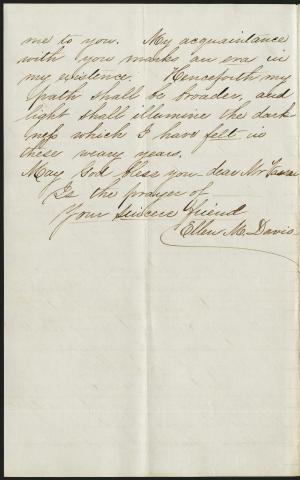 me to you. My acquaintance
with you marks an era in
my existence. Henceforth my
path shall be broader, and
light shall illumine the dark
ness which I have felt in
these weary years.
May God bless you dear Mr
Is the prayer of
Your sincere friend
Ellen M. Davis